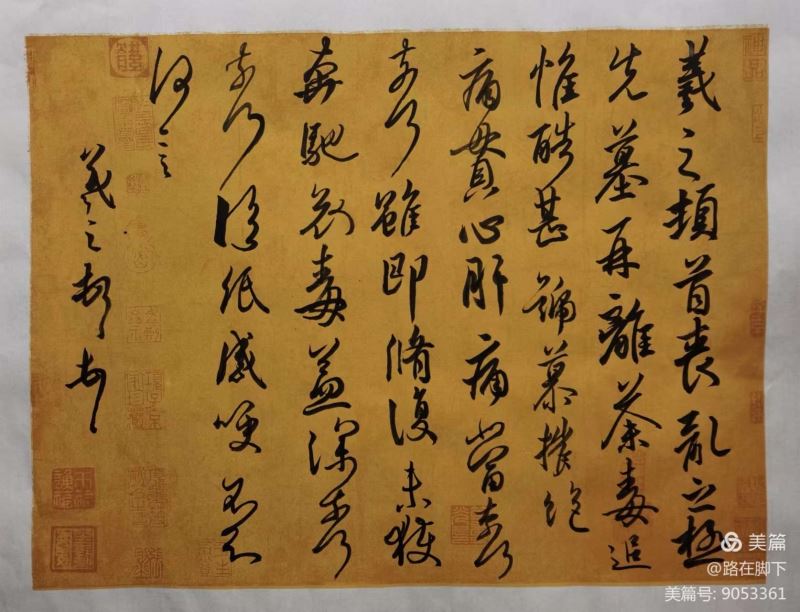 羲之頓首喪亂之極
先墓再離荼毒追
惟酷甚號慕摧絕
痛貫心肝痛當奈何
奈何雖即脩復未獲
奔馳哀毒益深奈何
奈何臨紙感哽不知
何言
羲之頓首頓首
美篇
@路在脚下
美篇号: 9053361